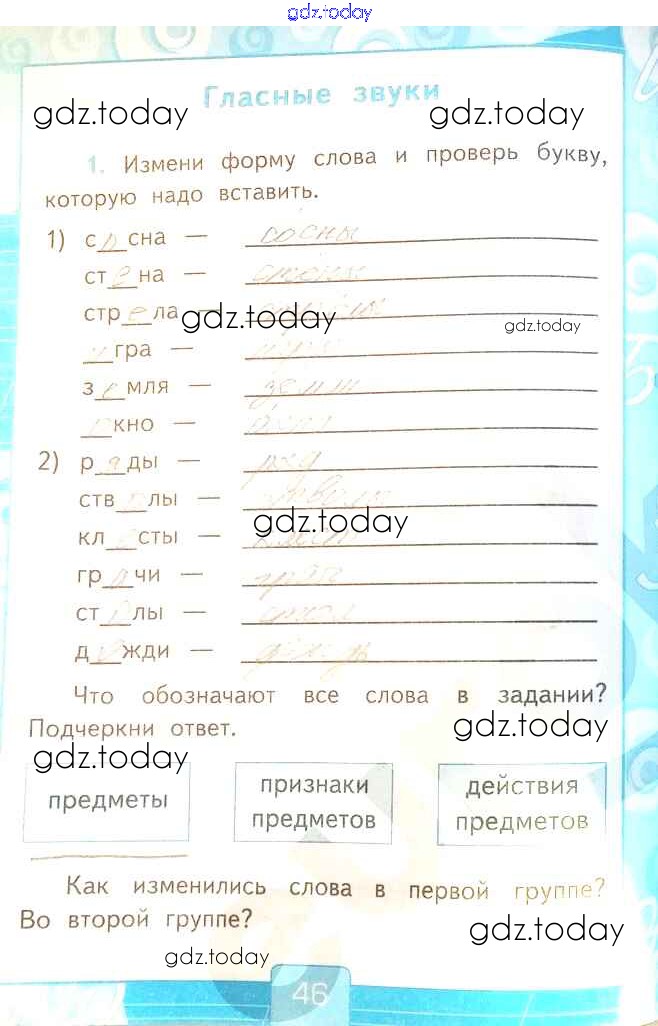 gdz.today
Гласные звуки
gdz.today gdz.today
1. Измени форму слова и проверь букву,
которую надо вставить.
1) с о сна — сосны
ст е на —
стр е ла —
gdz.today gdz.today
и гра —
з е мля — земли
о кно —
2) р я ды — ряд
ств о лы —
gdz.today
кл е сты —
гр а чи —
ст о лы — стол
д о жди — дождь
Что обозначают все слова в задании?
Подчеркни ответ.
gdz.today gdz.today
предметы
признаки предметов
действия предметов
Как изменились слова в первой группе?
Во второй группе?
gdz.today gdz.today
46